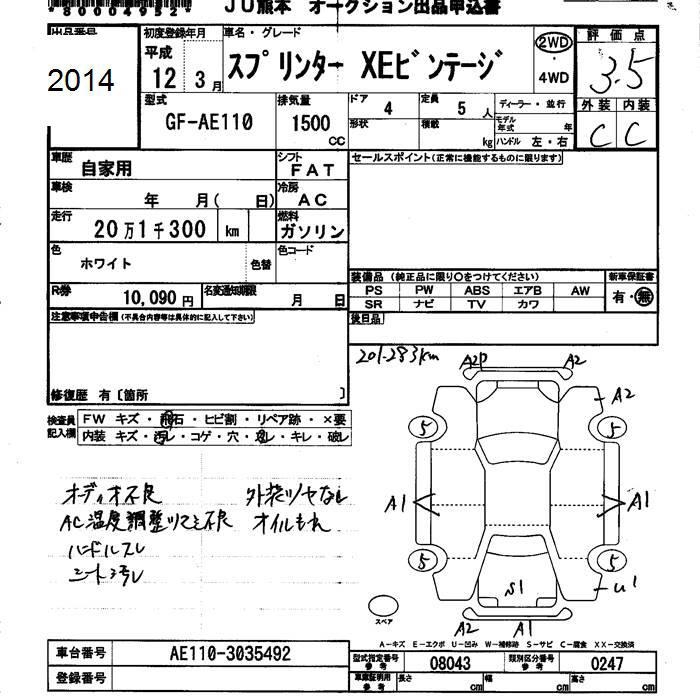 80004952
JU熊本 オークション出品申込書
出品番号
2014
初度登録年月
平成
12 3月
車名・グレード
スプリンター XEビンテージ
2WD
4WD
評価点
3.5
外装 内装
C C
型式
GF-AE110
排気量
1500
CC
ドア
4
定員
5 人
ディーラー・並行
形状
積載
kg
モデル年式
年
ハンドル 左・右
車歴
自家用
シフト
FAT
セールスポイント(正常に機能するものに限ります)
車検
年 月( 日)
冷房
AC
走行
20万1千300 km
燃料
ガソリン
色
ホワイト
色替
色コード
R券
10,090円
名変通知期限
月 日
装備品 (純正品に限り○をつけてください)
PS PW ABS エアB AW
SR ナビ TV カワ
新車保証書
有・無
後日品
注意事項申告欄(不具合内容等は具体的に記入して下さい)
修復歴 有〔箇所 〕
201-283km
検査員
記入欄
FW キズ・飛石・ヒビ割・リペア跡・×要
内装 キズ・汚レ・コゲ・穴・破レ・キレ・破レ
オーディオ不良 外装ツヤなし
AC温度調整ツマミ不良 オイルもれ
ハンドルスレ
シート汚レ
A2P A2
A2
5 5
A1 A1
5 5
U1
S1
A2 A1
スペア
A-キズ E-エクボ U-凹み W-補修跡 S-サビ C-腐食 XX-交換済
車台番号
AE110-3035492
登録番号
型式指定番号
参考
08043
類別区分番号
参考
0247
車庫証明用
参考
長さ
cm
幅
cm
高さ
cm